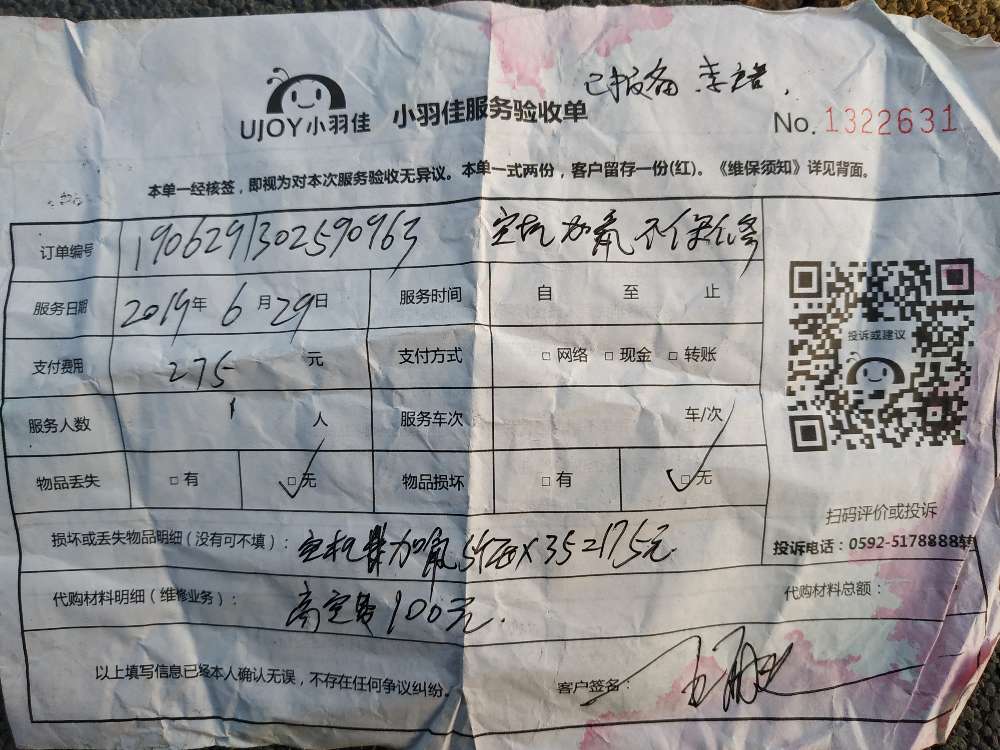 已报备
UJOY小羽佳 小羽佳服务验收单 No.1322631
本单一经核签，即视为对本次服务验收无异议。本单一式两份，客户留存一份(红)。《维保须知》详见背面。
订单编号 1906291302590963 空机加氟不保修
服务日期 2019年6月29日 服务时间 自 至 止
投诉或建议
支付费用 275 元 支付方式 □网络 □现金 □转账
服务人数 1 人 服务车次 车/次
物品丢失 □有 □无 物品损坏 □有 □无
扫码评价或投诉
损坏或丢失物品明细（没有可不填）： 空机 加氟 5 X35 =175元
投诉电话：0592-5178888转
代购材料明细（维修业务）： 高空费100元. 代购材料总额：
以上填写信息已经本人确认无误，不存在任何争议纠纷。 客户签名：